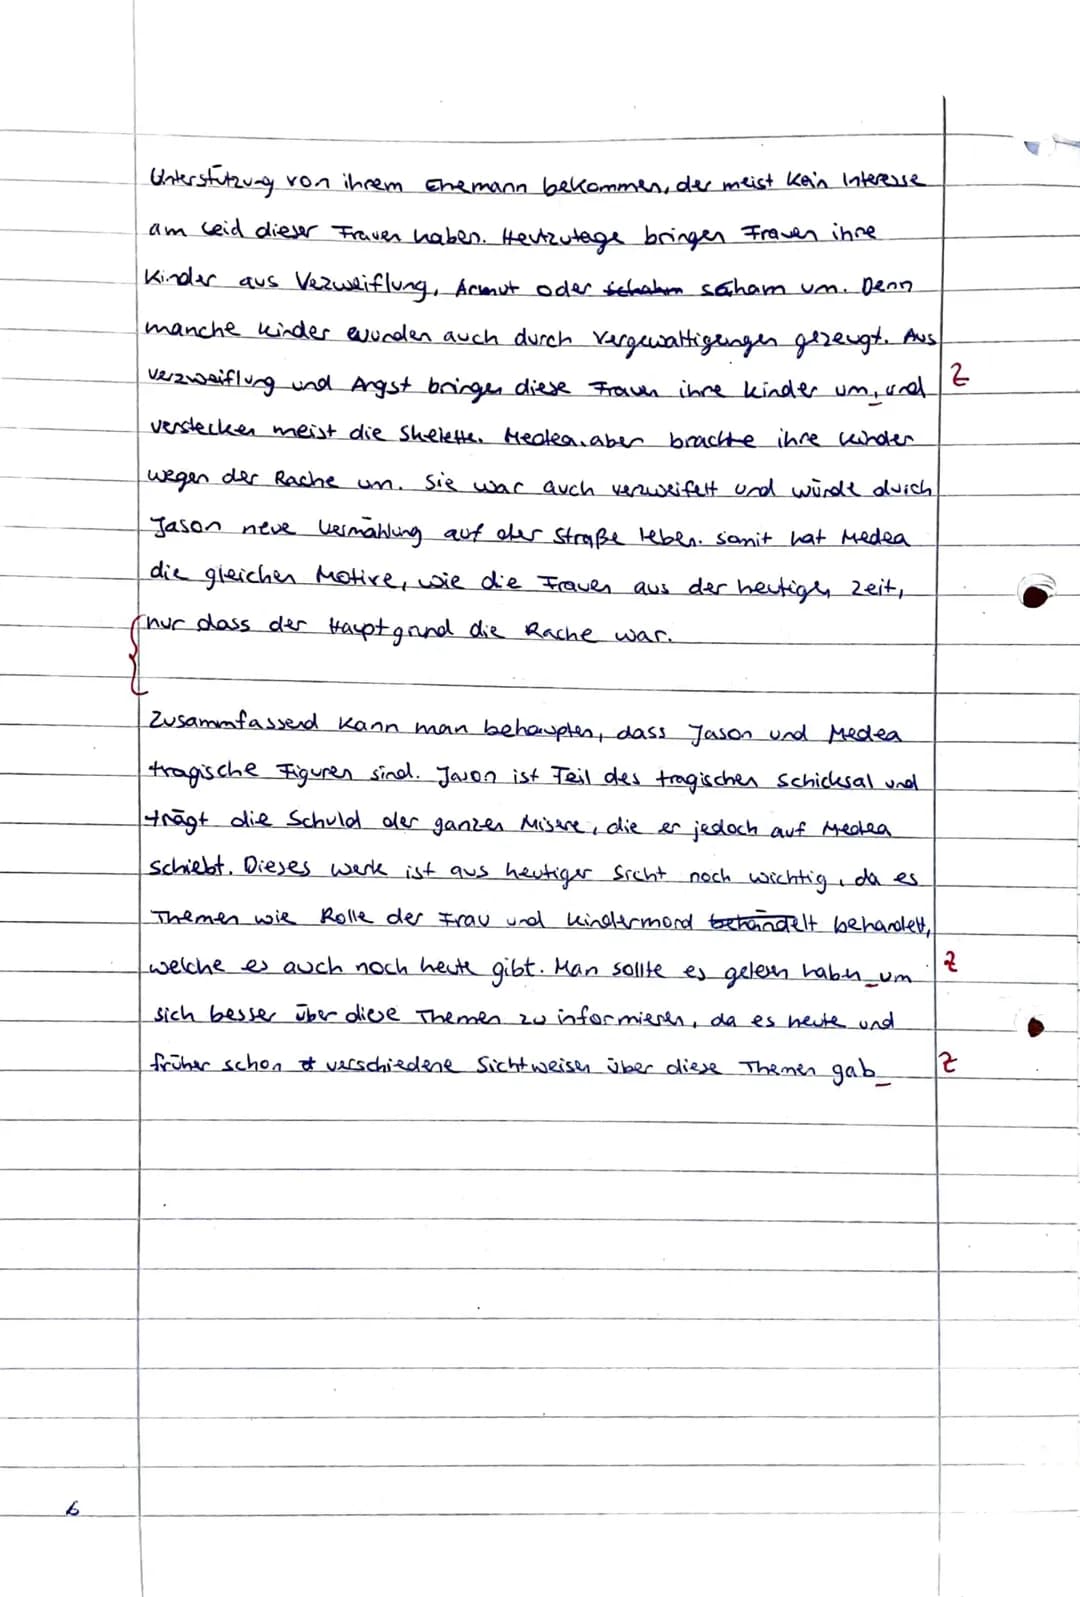 Unterstützung von ihrem Ehemann bekommen, der meist kein Interesse
am Leid dieser Frauen haben. Heutzutage bringen Frauen ihre
Kinder aus Vezweiflung, Armut oder schahm scham um. Denn
manche Kinder wurden auch durch Vergewaltigungen gezeugt. Aus
Verzweiflung und Angst bringen diese Frauen ihre Kinder um, und
Z
verstecken meist die Skelette. Medea aber brachte ihre Kinder
wegen der Rache um. Sie war auch verzweifelt und würde durch
Jason neue Vermählung auf der Straße leben. somit hat Medea
die gleichen Motive, wie die Frauen aus der heutigen Zeit,
nur dass der Hauptgrund die Rache war.
Zusammfassend kann man behaupten, dass Jason und Medea
tragische Figuren sind. Jason ist Teil des tragischen Schicksal und
trägt die Schuld der ganzen Misere, die er jedoch auf Medea
schiebt. Dieses Werk ist aus heutiger Sicht noch wichtig, da es
Themen wie Rolle der Frau und Kindermord behandelt behandelt,
welche es auch noch heute gibt. Man sollte es gelesen haben um
Z
sich besser über diese Themen zu informieren, da es heute und
früher schon verschiedene Sichtweisen über diese Themen gab
Z
6